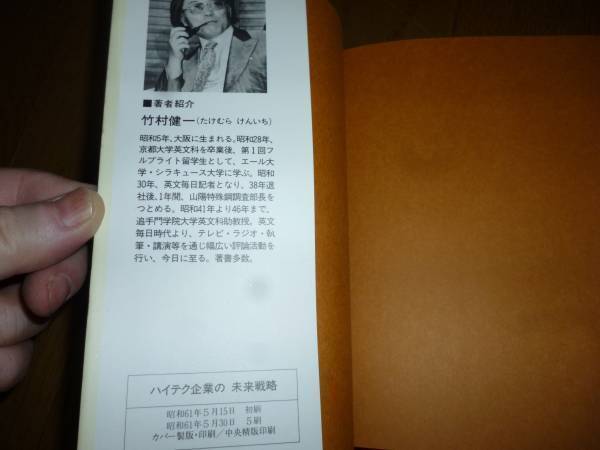 ■著者紹介
竹村健一(たけむら けんいち)
昭和5年、大阪に生まれる。昭和28年、
京都大学英文科を卒業後、第1回フ
ルブライト留学生として、エール大
学・シラキュース大学に学ぶ。昭和
30年、英文毎日記者となり、38年退
社後、1年間、山陽特殊鋼調査部長を
つとめる。昭和41年より46年まで、
追手門学院大学英文科助教授。英文
毎日時代より、テレビ・ラジオ・執
筆・講演等を通じ幅広い評論活動を
行い、今日に至る。著書多数。
ハイテク企業の 未来戦略
昭和61年5月15日 初刷
昭和61年5月30日 5刷
カバー製版・印刷/中央精版印刷